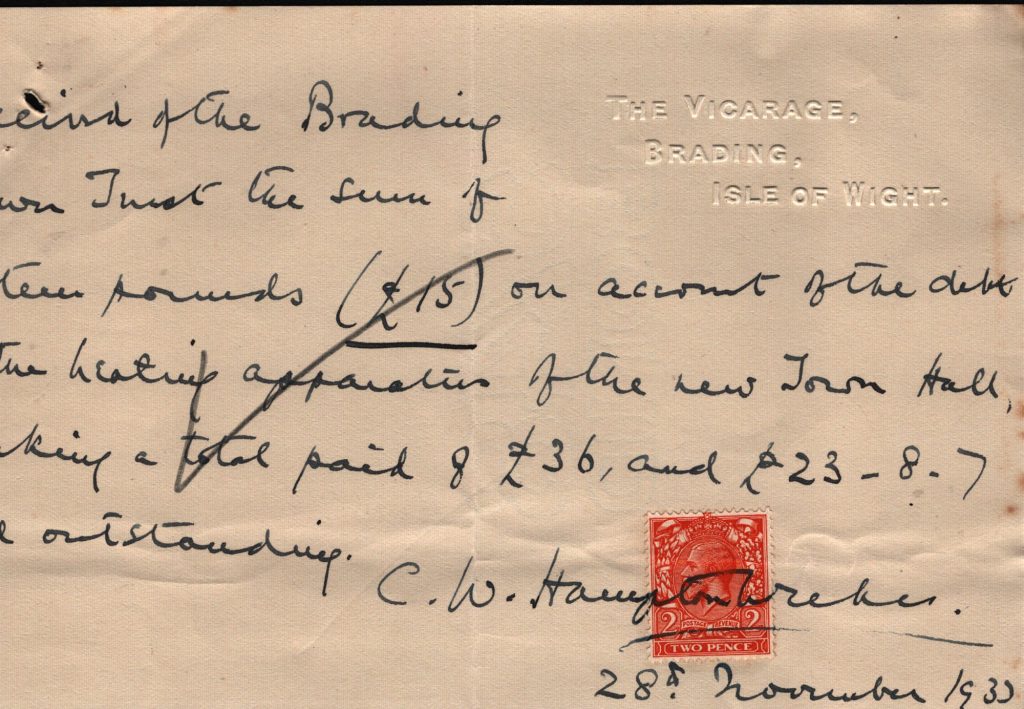 THE VICARAGE,
BRADING,
ISLE OF WIGHT.
ceived of the Brading
wn Trust the sum of
teen pounds (£15) on account of the debt
the heating apparatus of the new Town Hall,
king a total paid of £36, and £23-8-7
outstanding.
C. W. Hampton
POSTAGE REVENUE
2 2
TWO PENCE
28th November